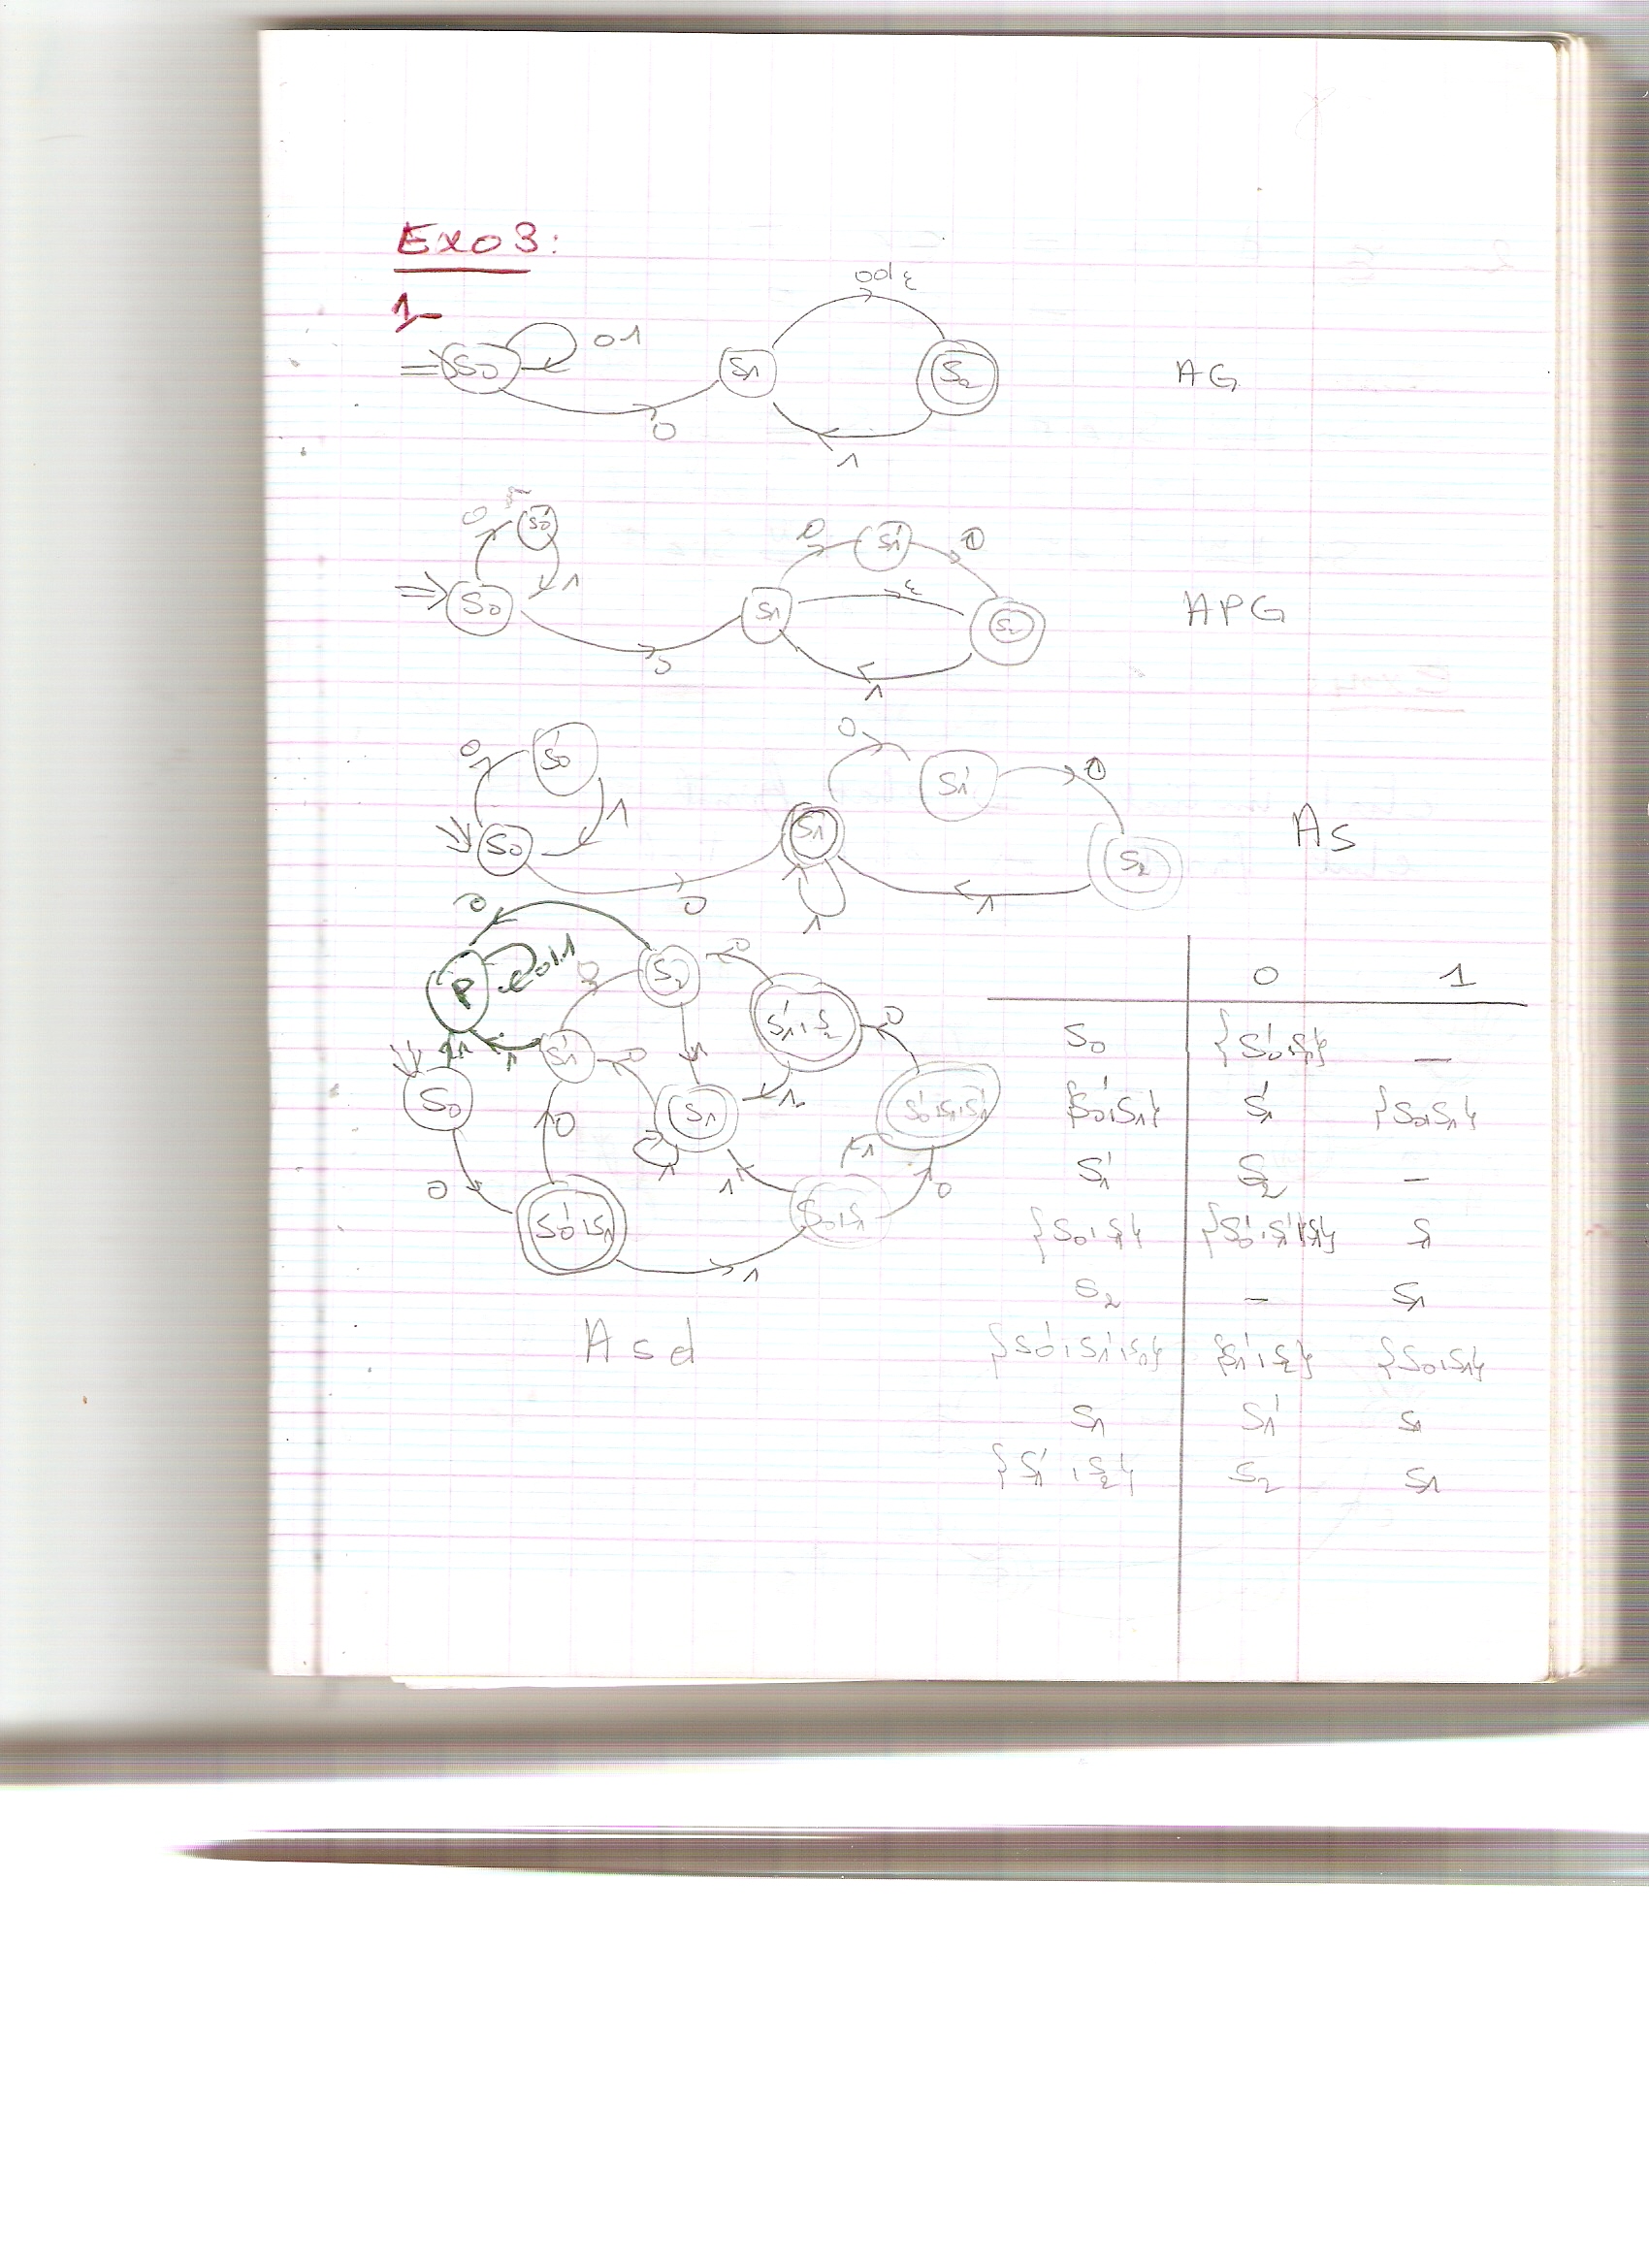 Exo 3:
1-
S0 01 0 S1 00|ε S2 1 AG
S0 0 S'0 1 0 S1 0 S'1 0 ε S2 1 APG
S0 0 S'0 1 0 S1 1 0 S'1 0 S2 1 As
P 0,1 0 S2 0 S'1,S2 0
S0 1 1 S'1 0 1 S1 1 1 S'0,S1,S'1
0 0 S'0,S1 1 S0,S1 1 1 0
Asd
0 1
S0 {S'0,S1} —
{S'0,S1} S'1 {S0,S1}
S'1 S2 —
{S0,S1} {S'0,S'1,S1} S1
S2 — S1
{S'0,S'1,S1} {S'1,S2} {S0,S1}
S1 S'1 S1
{S'1,S2} S2 S1